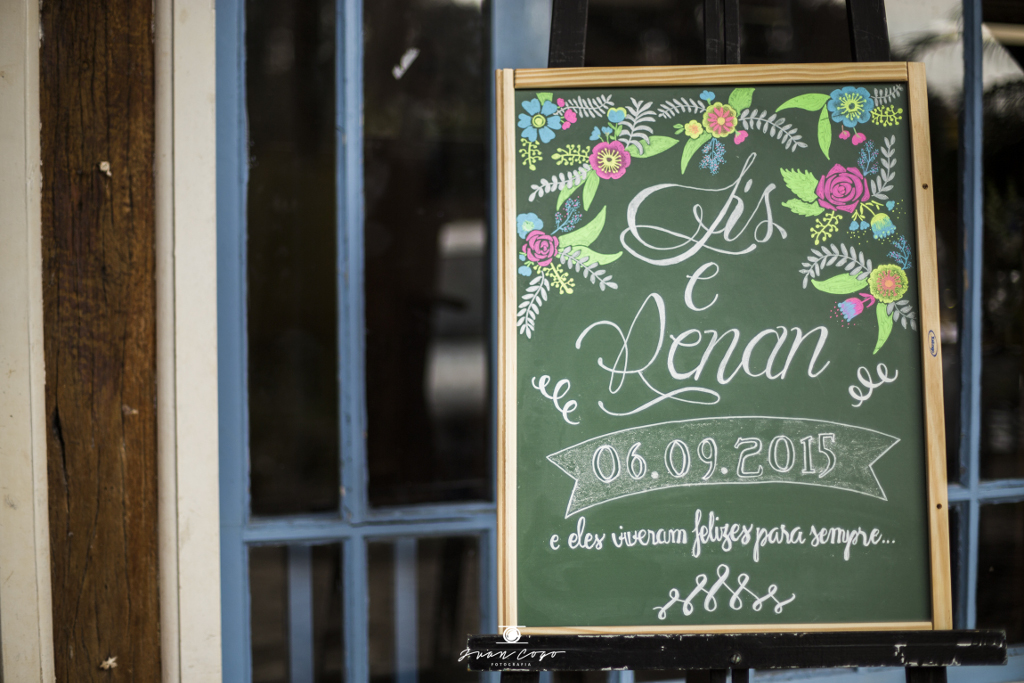 e
Renan
06.09.2015
e eles viveram felizes para sempre...
Juan Cogo
FOTOGRAFIA